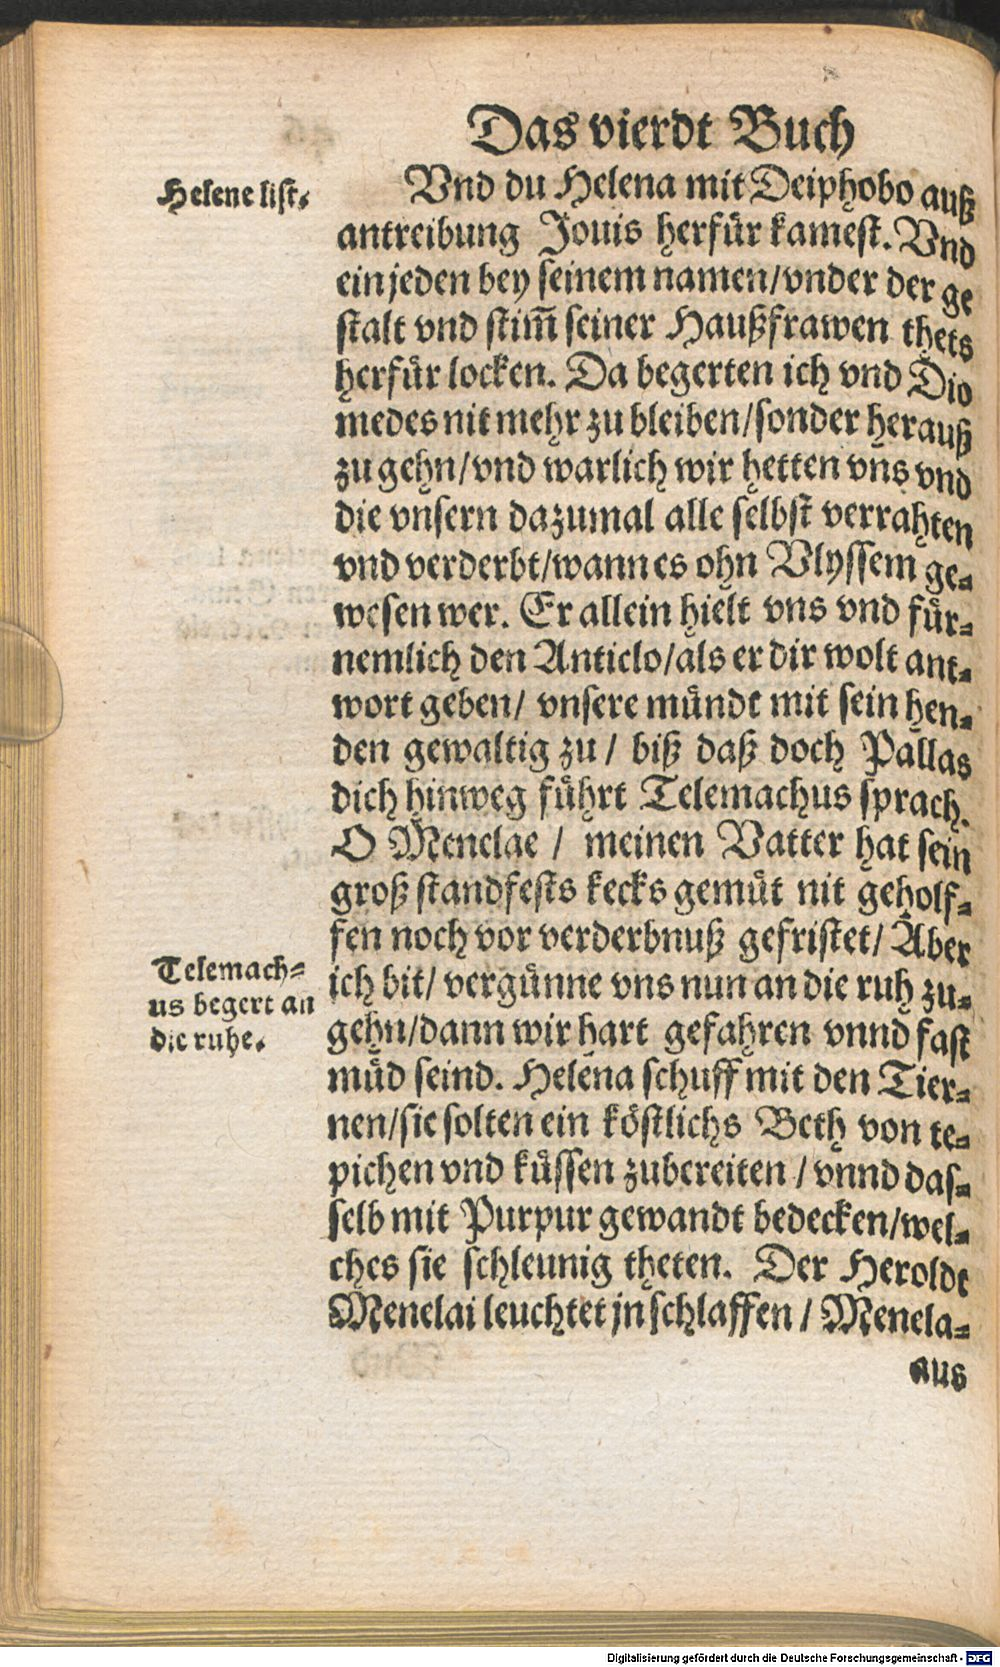 Das vierdt Buch
Helene list.
Vnd du Helena mit Deiphobo auß
antreibung Jouis herfür kamest. Vnd
ein jeden bey seinem namen/vnder der ge
stalt vnd stim̃ seiner Haußfrawen thets
herfür locken. Da begerten ich vnd Dio
medes nit mehr zu bleiben/sonder herauß
zu gehn/vnd warlich wir hetten vns vnd
die vnsern dazumal alle selbst verrahten
vnd verderbt/wann es ohn Vlyssem ge-
wesen wer. Er allein hielt vns vnd für-
nemlich den Anticlo/als er dir wolt ant-
wort geben/ vnsere mündt mit sein hen-
den gewaltig zu/ biß daß doch Pallas
dich hinweg führt Telemachus sprach.
O Menelae / meinen Vatter hat sein
groß standfests kecks gemüt nit geholf-
fen noch vor verderbnuß gefristet/ Aber
Telemach-
us begert an
die ruhe.
ich bit/ vergünne vns nun an die ruh zu-
gehn/dann wir hart gefahren vnnd fast
müd seind. Helena schuff mit den Tier-
nen/sie solten ein köstlichs Beth von te-
pichen vnd küssen zubereiten / vnnd das-
selb mit Purpur gewandt bedecken/wel-
ches sie schleunig theten. Der Heroldt
Menelai leuchtet jn schlaffen / Menela-
aus
Digitalisierung gefördert durch die Deutsche Forschungsgemeinschaft - DFG